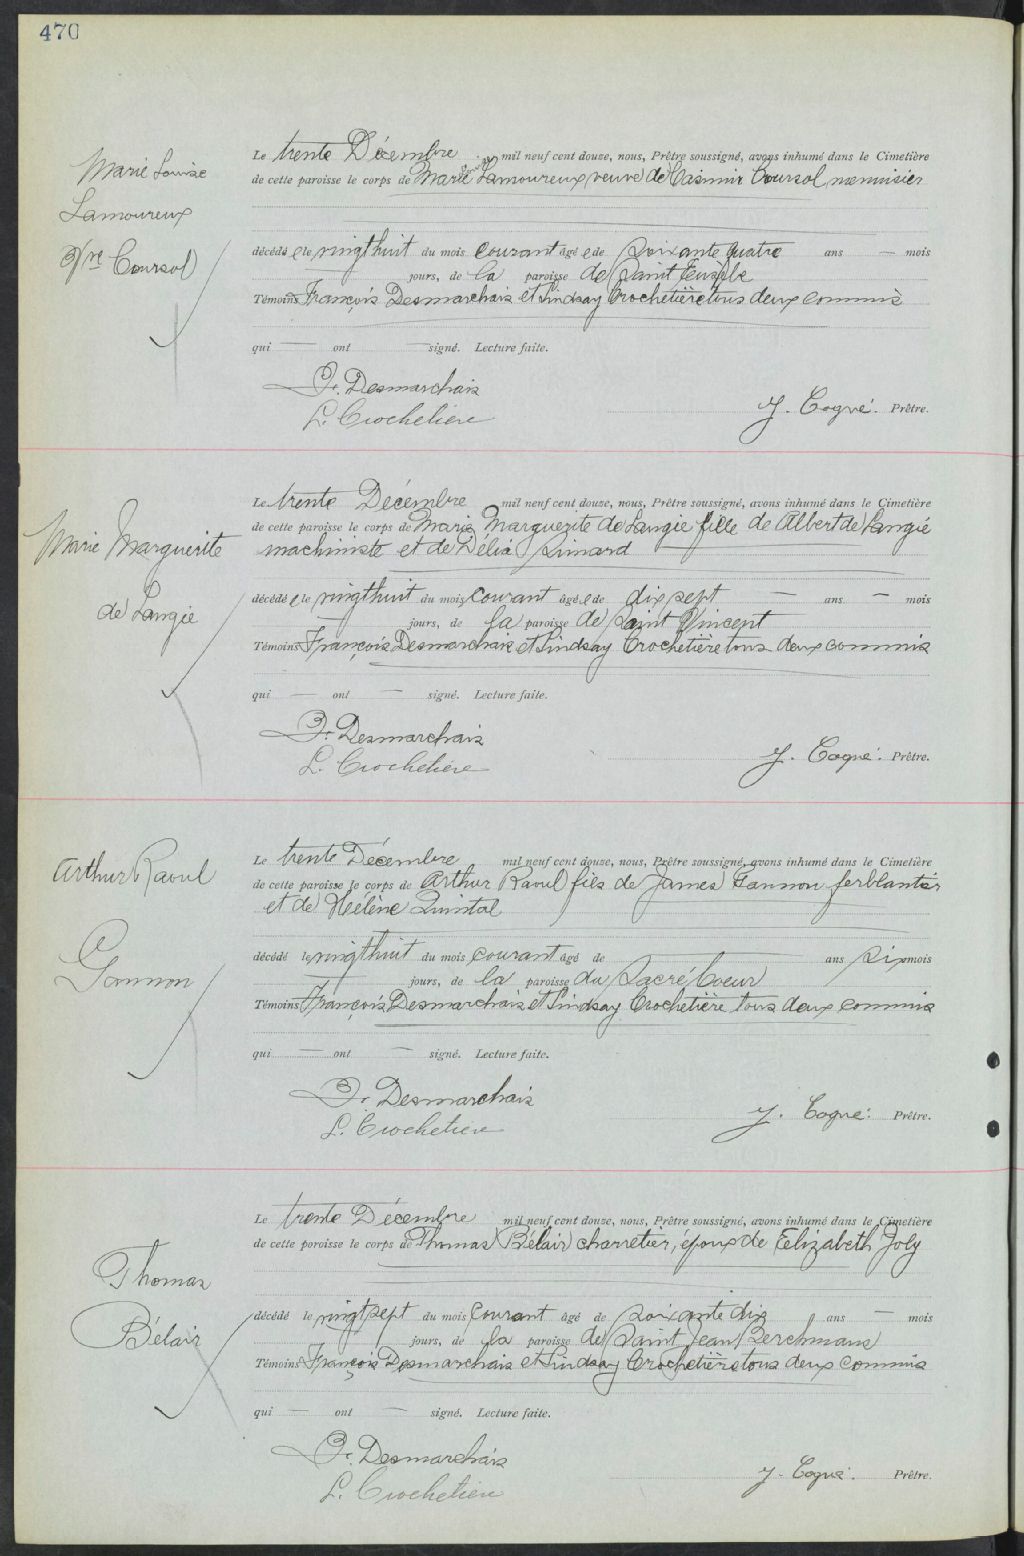 470
Marie Louise
Lamoureux
Vve Coursol
Le trente Décembre mil neuf cent douze, nous, Prêtre soussigné, avons inhumé dans le Cimetière
de cette paroisse le corps de Marie Louise Lamoureux veuve de Casimir Coursol menuisier
décédée le vingthuit du mois courant âgée de Soixante quatre ans — mois
jours, de la paroisse de Saint Eusèbe
Témoins François Desmarchais et Lindsay Crochetière tous deux commis
qui — ont — signé. Lecture faite.
F. Desmarchais
L. Crochetière
J. Cogné. Prêtre.
Marie Marguerite
de Langie
Le trente Décembre mil neuf cent douze, nous, Prêtre soussigné, avons inhumé dans le Cimetière
de cette paroisse le corps de Marie Marguerite de Langie fille de Albert de Langié
machiniste et de Délia Simard
décédée le vingthuit du mois courant âgée de dix sept — ans — mois
jours, de la paroisse de Saint Vincent
Témoins François Desmarchais et Lindsay Crochetière tous deux commis
qui — ont — signé. Lecture faite.
F. Desmarchais
L. Crochetière
J. Cogné. Prêtre.
Arthur Raoul
Gannon
Le trente Décembre mil neuf cent douze, nous, Prêtre soussigné, avons inhumé dans le Cimetière
de cette paroisse le corps de Arthur Raoul fils de James Gannon ferblantier
et de Hélène Quintal
décédé le vingthuit du mois courant âgé de ans six mois
jours, de la paroisse du Sacré Coeur
Témoins François Desmarchais et Lindsay Crochetière tous deux commis
qui — ont — signé. Lecture faite.
F. Desmarchais
L. Crochetière
J. Cogné. Prêtre.
Thomas
Bélair
Le trente Décembre mil neuf cent douze, nous, Prêtre soussigné, avons inhumé dans le Cimetière
de cette paroisse le corps de Thomas Bélair charretier, époux de Elizabeth Joly
décédé le vingt sept du mois courant âgé de soixante dix ans — mois
jours, de la paroisse de Saint Jean Berchmans
Témoins François Desmarchais et Lindsay Crochetière tous deux commis
qui — ont — signé. Lecture faite.
F. Desmarchais
L. Crochetière
J. Cogné. Prêtre.